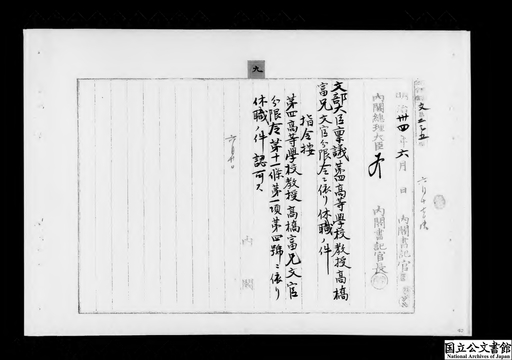 九
明治卅四年六月 日
内閣總理大臣
内閣書記官長
内閣書記官
文部大臣稟議第四高等學校教授高橋
富兄文官分限令ニ依リ休職ノ件
指令按
第四高等學校教授高橋富兄文官
分限令第十一條第一項第四號ニ依リ
休職ノ件認可ス
内閣
国立公文書館
National Archives of Japan